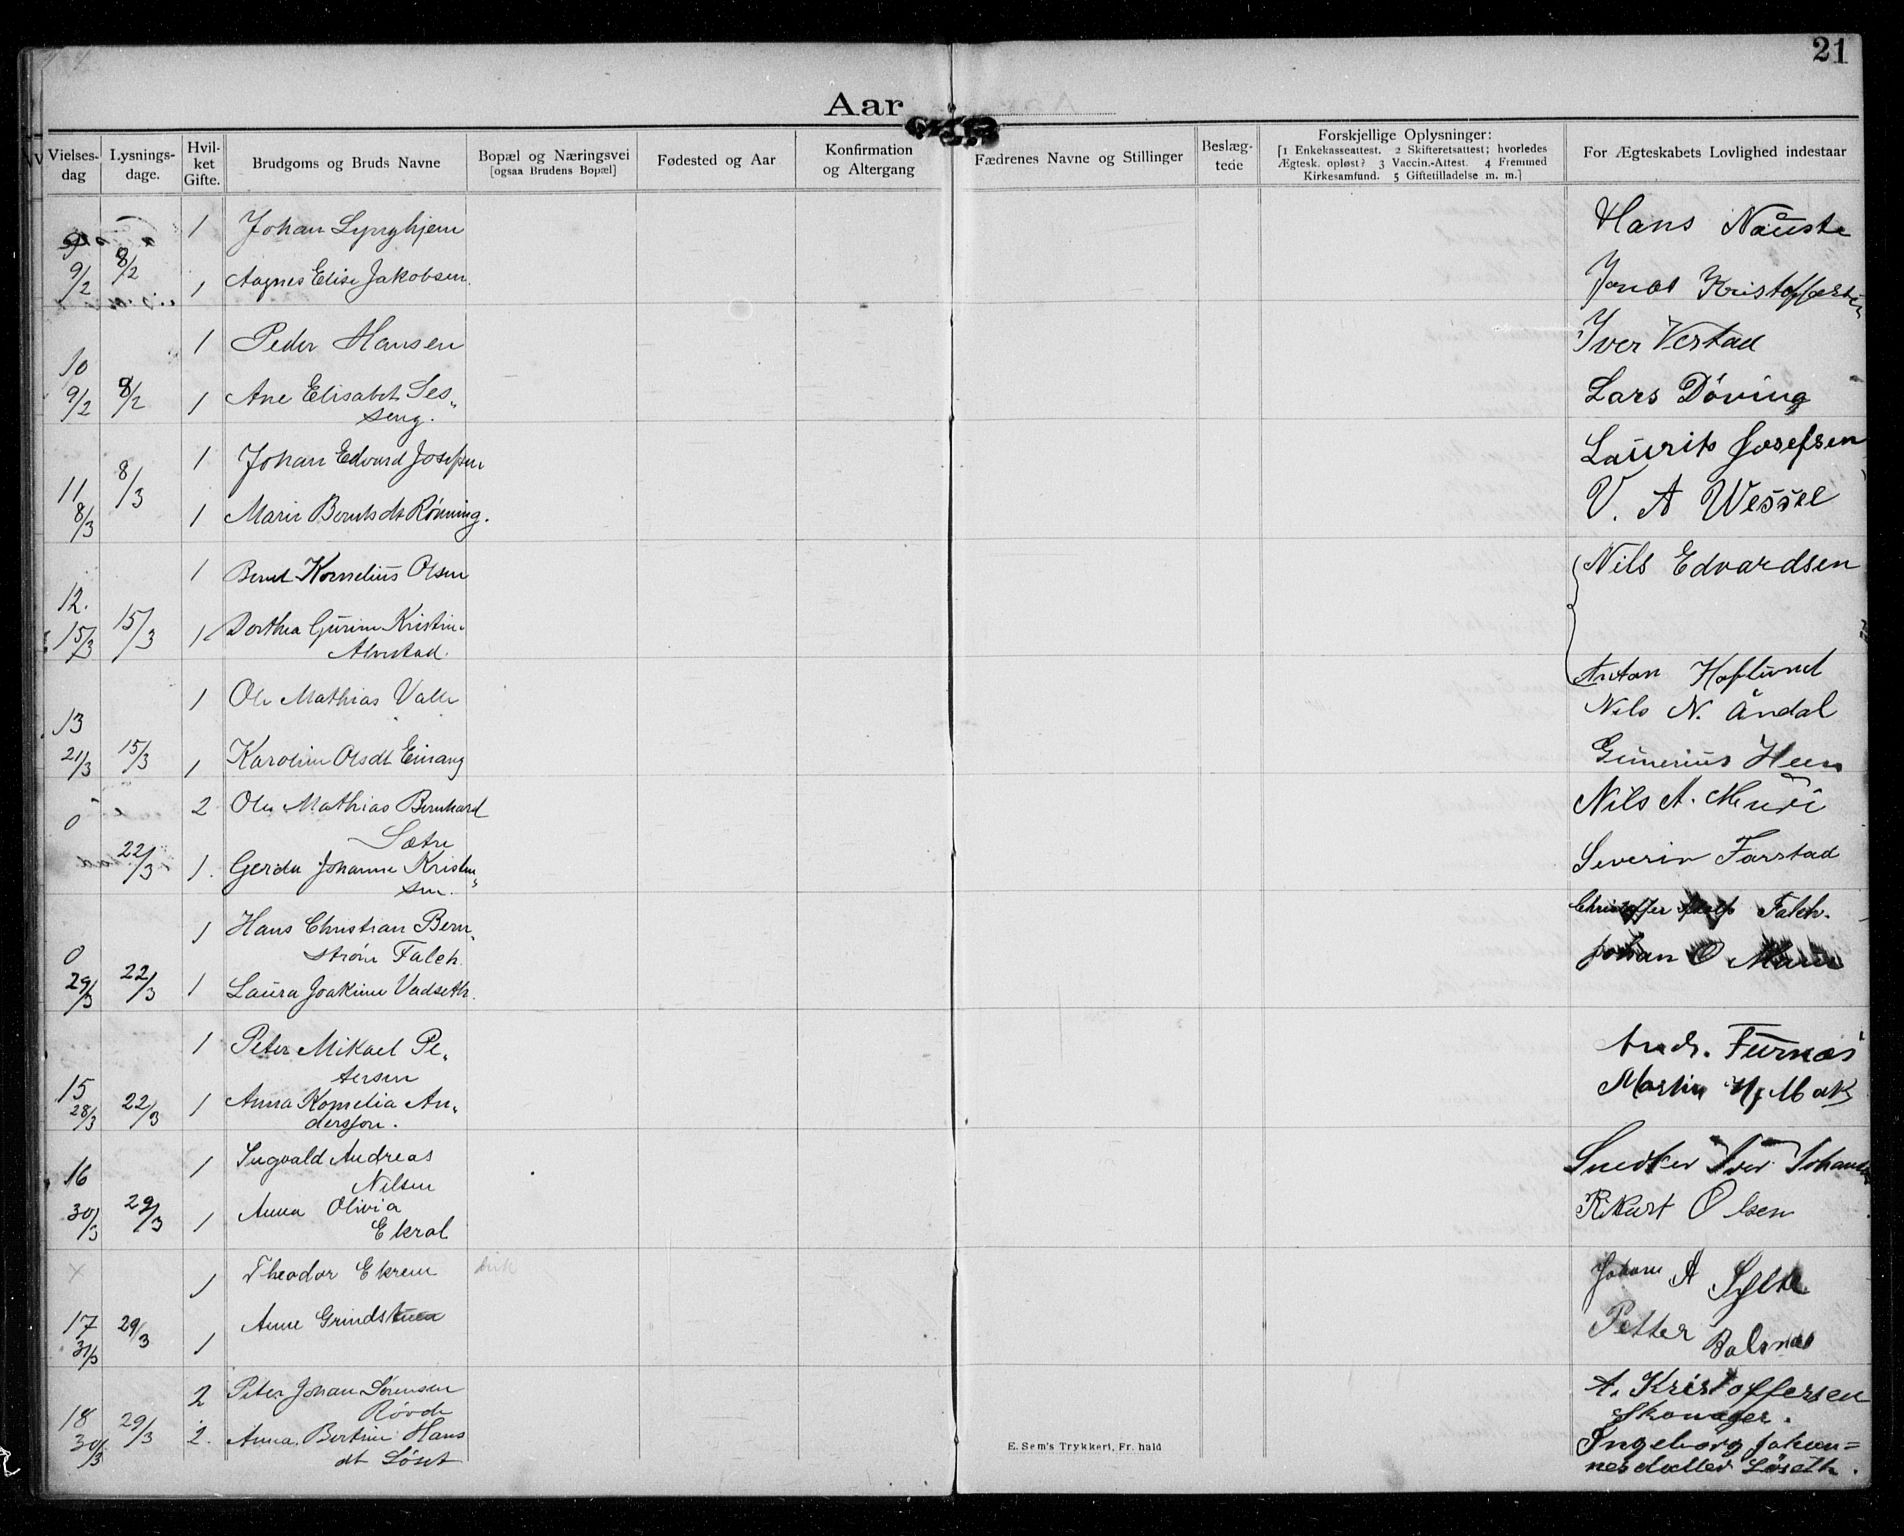 21
Aar
Vielses-dag
Lysnings-dage.
Hvil-ket Gifte.
Brudgoms og Bruds Navne
Bopæl og Næringsvei
[ogsaa Brudens Bopæl]
Fødested og Aar
Konfirmation
og Altergang
Fædrenes Navne og Stillinger
Beslæg-tede
Forskjellige Oplysninger:
[1 Enkekasseattest. 2 Skifteretsattest; hvorledes
Ægtesk. opløst? 3 Vaccin.-Attest. 4 Fremmed
Kirkesamfund. 5 Giftetilladelse m. m.]
For Ægteskabets Lovlighed indestaar
9 1 Johan Lynghjem Hans Nauste
9/2 8/2 1 Agnes Elise Jakobsen. Jonas Kristoffersen
1 Peder Hansen Iver Verstad
10
9/2 8/2 1 Ane Elisabet Ses„ Lars Döving
seng.
1 Johan Edvard Josefsen Laurits Josefsen
11 8/3
8/3 1 Marie Berntsdt Rønning. V. A Wessel
1 Bernt Kornelius Olsen Nils Edvardsen
12.
15/3 15/3 1 Dorthea Gurine Kristine
Alvestad.
Anton Hoflund
1 Ole Mathias Valle Nils N. Åndal
13
21/3 15/3 1 Karoline Olsdt Einang Gunerius Heen
0 2 Ole Mathias Bernhard Nils A. Muri
Sætre
22/3 1. Gerda Johanne Kristen„ Severin Farstad
sen.
1 Hans Christian Bern„ Christoffer Falch.
0 strøm Falch Johan O
29/3 22/3 1 Laura Joakime Vadseth.
1 Peter Mikael Pe„ Andr. Furnæs
tersen
15 Martin Hj Mak
28/3 22/3 1 Anna Kornelia An„
dersson.
16 1 Ingvald Andreas Snedker Iver Johansen
Nilsen
30/3 29/3 1 Anna Olivia Rikart Olsen
Ekrol
x 1 Theodor Ekrem Johan A Sylte
17 29/3 Anne Grindstuen Petter Dalsnes
31/3 1
2 Peter Johan Sørensen A. Kristoffersen
Røvde Skomager.
18
30/3 29/3 2. Anna Bertine Hans Ingeborg Johan=
dt Løset nesdatter Løseth.
E. Sem's Trykkeri, Fr. hald